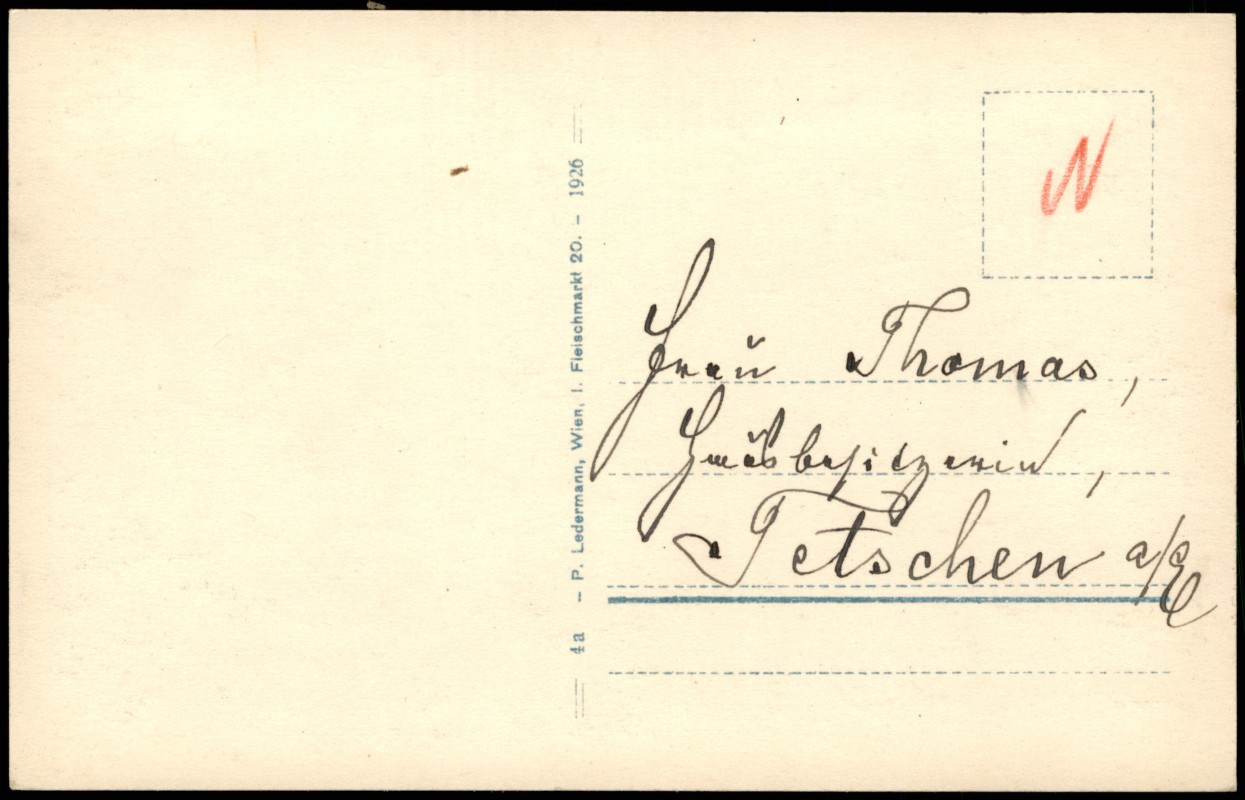 4a – P. Ledermann, Wien, I. Fleischmarkt 20. – 1926
N
Frau Thomas,
Hausbesitzerin,
Tetschen a/E